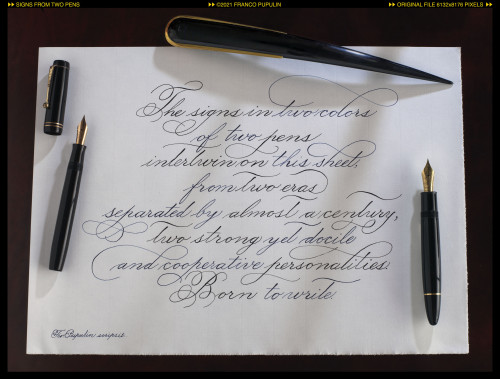 SIGNS FROM TWO PENS
©2021 FRANCO PUPULIN
ORIGINAL FILE 8132x6176 PIXELS
The signs in two colors
of two pens
intertwin on this sheet:
from two eras
separated by almost a century,
two strong yd docile
and cooperative personalities:
Born to write
Fr. Pupulin scripsit